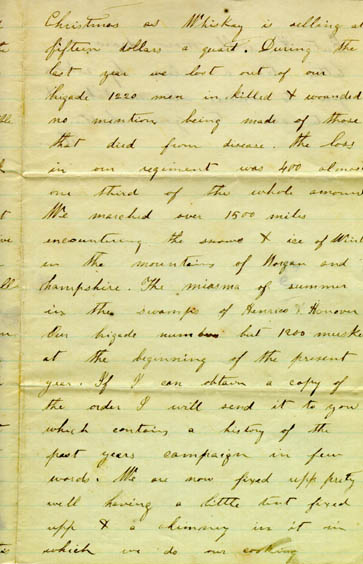 Christmas as Whiskey is selling at
fifteen dollars a quart. During the
last year we lost out of our
brigade 1220 men in killed & wounded
no mention being made of those
that died from disease. The loss
in our regiment was 400 almos
one third of the whole amoun
We marched over 1500 miles
encountering the snows & ice of Wint
in the mountains of Morgan and
hampshire. The miasma of summer
in the swamps of Henrico & Hanover
Our brigade number but 1200 muske
at the beginning of the present
year. If I can obtain a copy of
the order I will send it to you
which contains a history of the
past years campaign in few
words. We are now fixed upp prety
well having a little tent fixed
upp & a chimney in it in
which we do our cooking